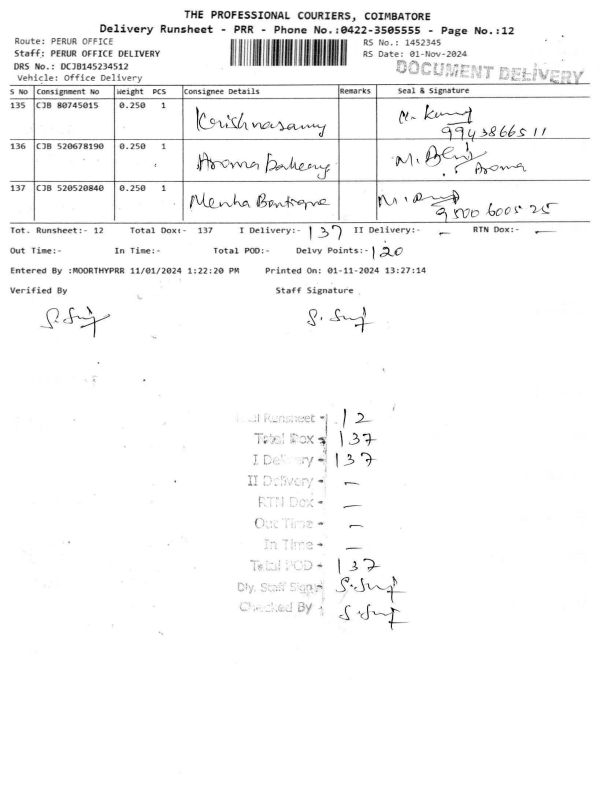 THE PROFESSIONAL COURIERS, COIMBATORE
Delivery Runsheet - PRR - Phone No.:0422-3505555 - Page No.:12
Route: PERUR OFFICE RS No.: 1452345
Staff: PERUR OFFICE DELIVERY RS Date: 01-Nov-2024
DRS No.: DCJB145234512 DOCUMENT DELIVERY
Vehicle: Office Delivery
S No Consignment No Weight PCS Consignee Details Remarks Seal & Signature
135 CJB 80745015 0.250 1 Krishnasamy
9943866511
136 CJB 520678190 0.250 1 Aroma Bakery Aroma
137 CJB 520520840 0.250 1 Menha
9500600525
Tot. Runsheet:- 12 Total Dox:- 137 I Delivery:- 137 II Delivery:- – RTN Dox:- –
Out Time:- In Time:- Total POD:- Delvy Points:- 120
Entered By :MOORTHYPRR 11/01/2024 1:22:20 PM Printed On: 01-11-2024 13:27:14
Verified By Staff Signature
Runsheet - 12
Total Dox - 137
I Delivery - 137
II Delivery - –
RTN Dox - –
Out Time - –
In Time - –
Total POD - 137
Dly. Staff Sign -
Checked By -